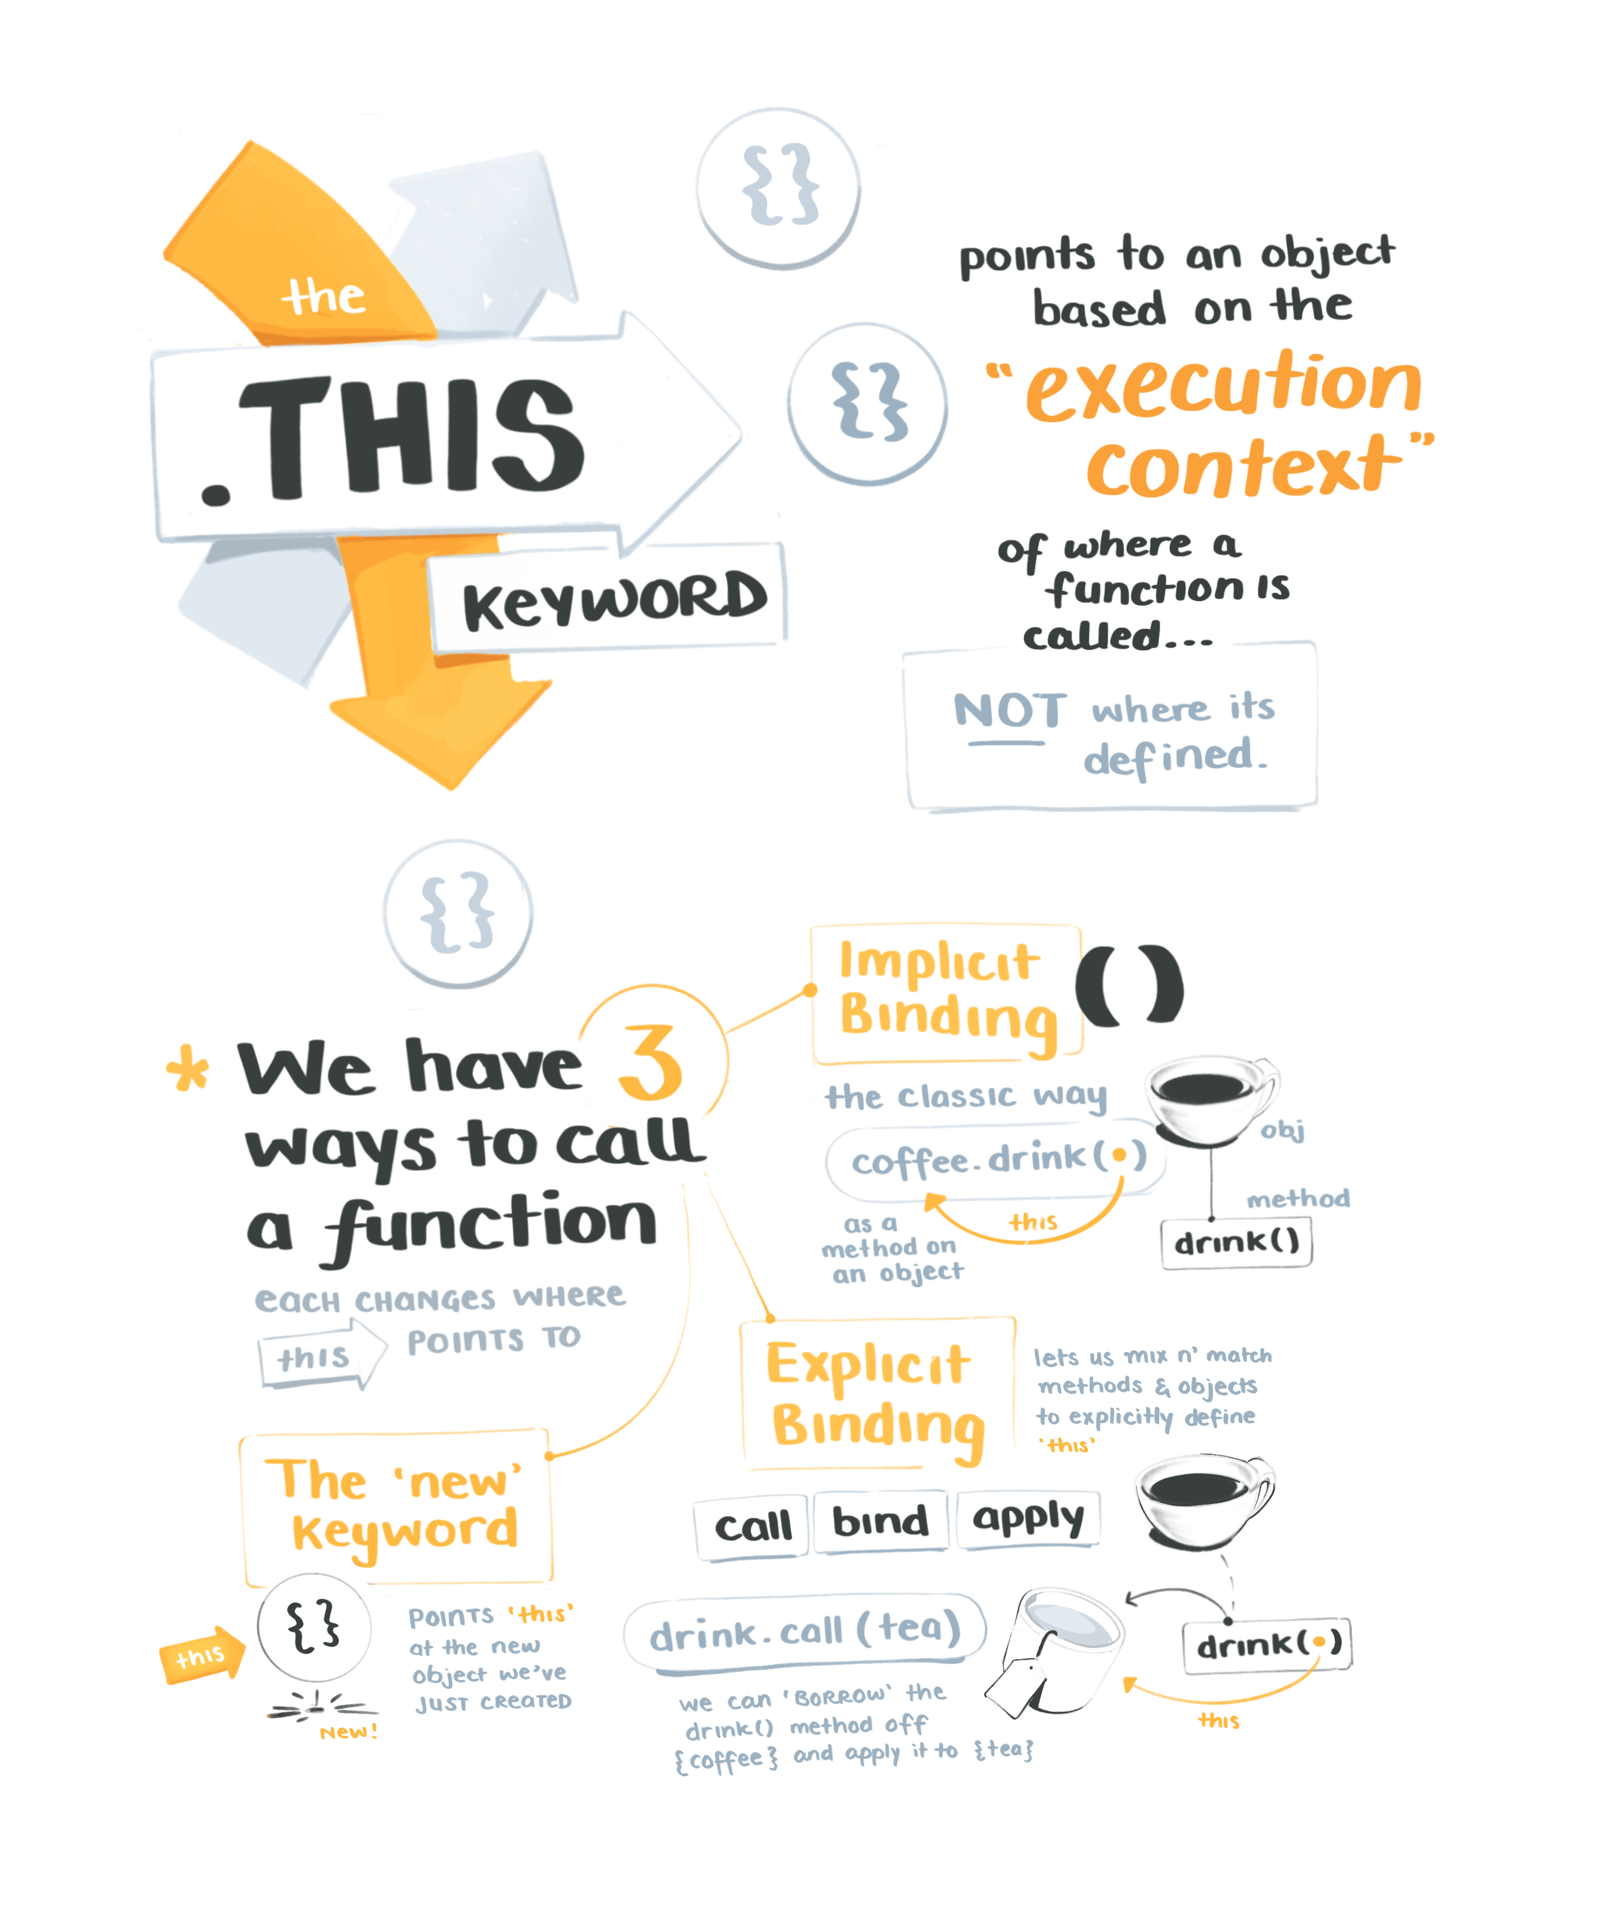 the
.THIS
KEYWORD
{}
{}
points to an object
based on the
“execution
context”
of where a
function is
called...
NOT where its
defined.
{}
* We have 3
ways to call
a function
EACH CHANGES WHERE
this POINTS TO
Implicit
Binding ()
the classic way
coffee.drink(•)
this
as a
method on
an object
obj
method
drink()
Explicit
Binding
lets us mix n' match
methods & objects
to explicitly define
'this'
call bind apply
drink.call(tea)
we can 'BORROW' the
drink() method off
{coffee} and apply it to {tea}
drink(•)
this
The 'new'
Keyword
this
{}
NEW!
POINTS 'this'
at the new
object we've
JUST CREATED